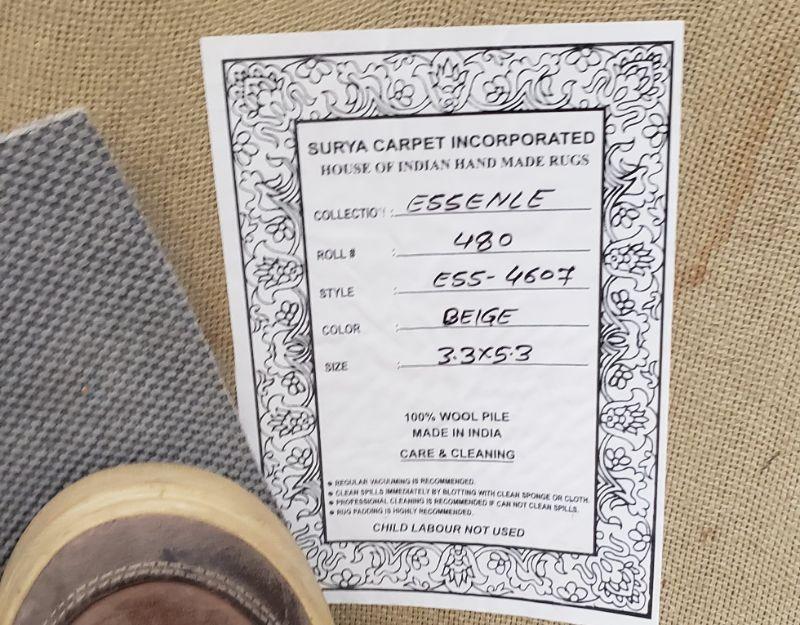 SURYA CARPET INCORPORATED
HOUSE OF INDIAN HAND MADE RUGS
COLLECTION : ESSENLE
ROLL # : 480
STYLE : ESS-4607
COLOR : BEIGE
SIZE : 3.3X5.3
100% WOOL PILE
MADE IN INDIA
CARE & CLEANING
● REGULAR VACUUMING IS RECOMMENDED.
● CLEAN SPILLS IMMEDIATELY BY BLOTTING WITH CLEAN SPONGE OR CLOTH.
● PROFESSIONAL CLEANING IS RECOMMENDED IF CAN NOT CLEAN SPILLS.
● RUG PADDING IS HIGHLY RECOMMENDED.
CHILD LABOUR NOT USED